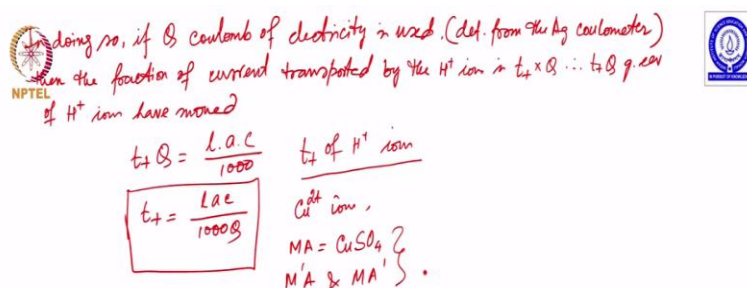 In doing so, if Q coulomb of electricity is used. (det. from the Ag coulometer)
then the fraction of current transported by the H+ ion is t+ × Q ∴ t+ Q g.eqv
NPTEL
of H+ ion have moved
t+ Q = l.a.c / 1000    t+ of H+ ion
t+ = lac / 1000Q    Cu2+ ion,
MA = CuSO4 }
M'A & MA' } .